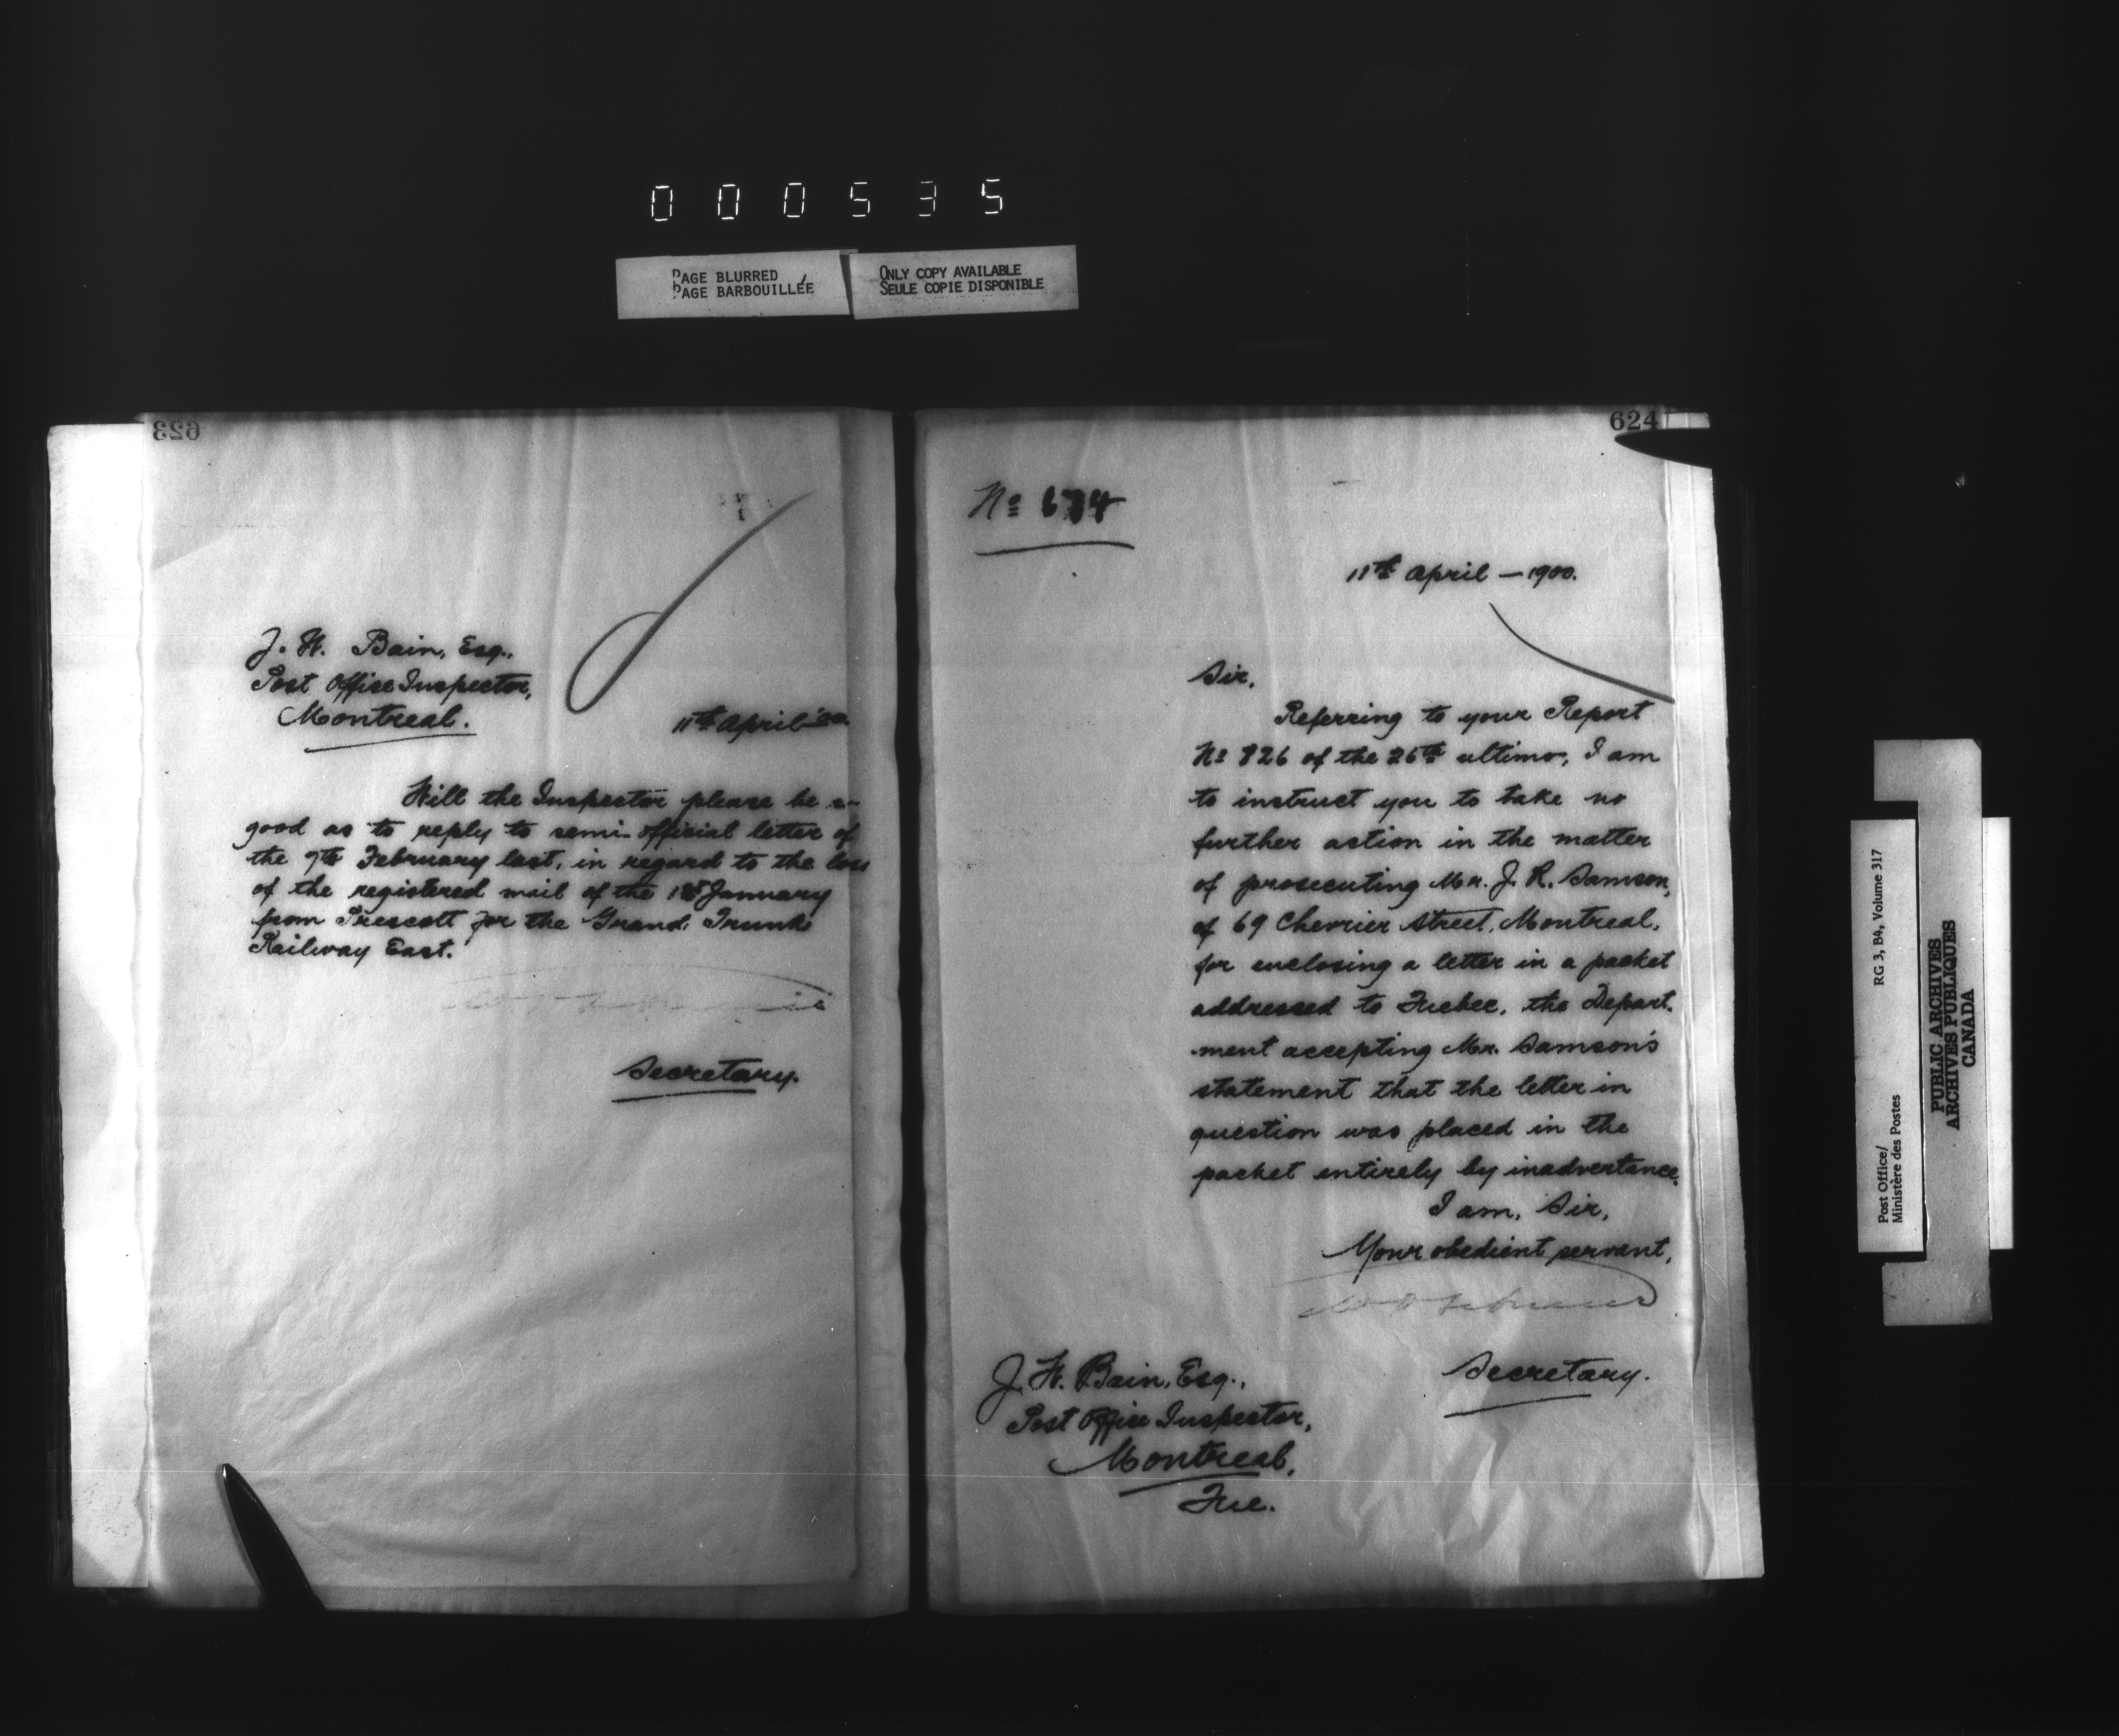 000535
PAGE BLURRED
PAGE BARBOUILLÉE
ONLY COPY AVAILABLE
SEULE COPIE DISPONIBLE
623
J. H. Bain, Esq.,
Post Office Inspector,
Montreal.
11th April '00.
Will the Inspector please be so
good as to reply to semi-official letter of
the 7th February last, in regard to the loss
of the registered mail of the 18th January
from Prescott for the Grand Trunk
Railway East.
Secretary.
624
No 674
11th April — 1900.
Sir,
Referring to your Report
No 826 of the 26th ultimo, I am
to instruct you to take no
further action in the matter
of prosecuting Mr. J. R. Samson,
of 69 Chevrier Street, Montreal,
for enclosing a letter in a packet
addressed to Quebec, the Depart-
-ment accepting Mr. Samson's
statement that the letter in
question was placed in the
packet entirely by inadvertance.
I am, Sir,
Your obedient servant,
Secretary.
J. H. Bain, Esq.,
Post Office Inspector,
Montreal,
Que.
Post Office/
Ministère des Postes
RG 3, B4, Volume 317
PUBLIC ARCHIVES
ARCHIVES PUBLIQUES
CANADA